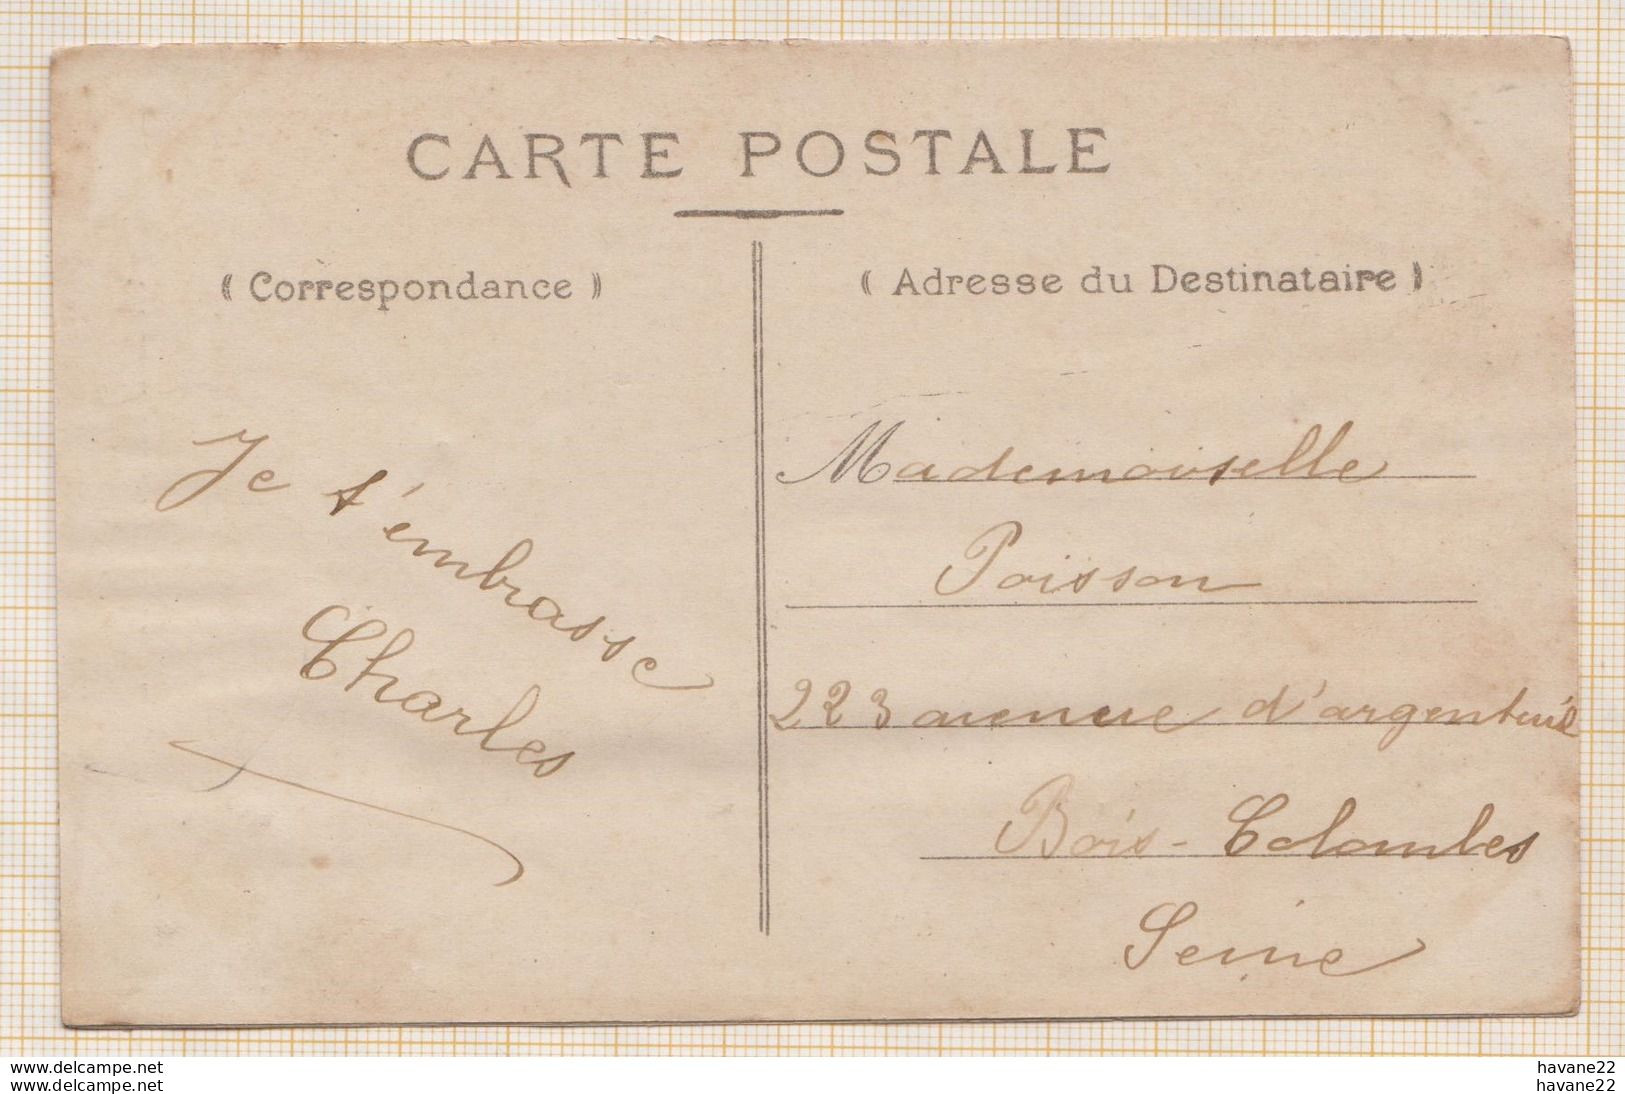 CARTE POSTALE
(( Correspondance ))
Je t'embrasse
Charles
(( Adresse du Destinataire ))
Mademoiselle
Poisson
223 avenue d'argenteuil
Bois-Colombes
Seine
www.delcampe.net
www.delcampe.net
havane22
havane22